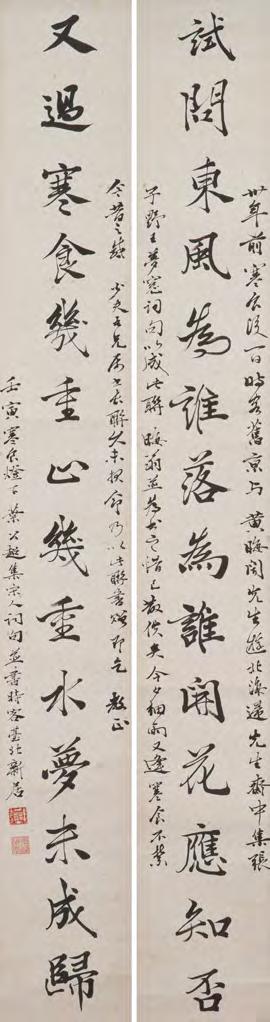 試問東風為誰落為誰開花應知否
又過寒食幾重山幾重水夢未成歸
卅年前寒食後一日時客舊京与黃晦聞先生遊北海還先生齋中集張
子野夢窗詞句以成此聯 晦翁並為書之惜已散佚矣今夕細雨又逢寒食不禁
今昔之感 少夫吾兄屬書長聯久未報命乃以此聯書贈即乞 教正
壬寅寒食燈下葉公超集宋人詞句並書時客臺北新居